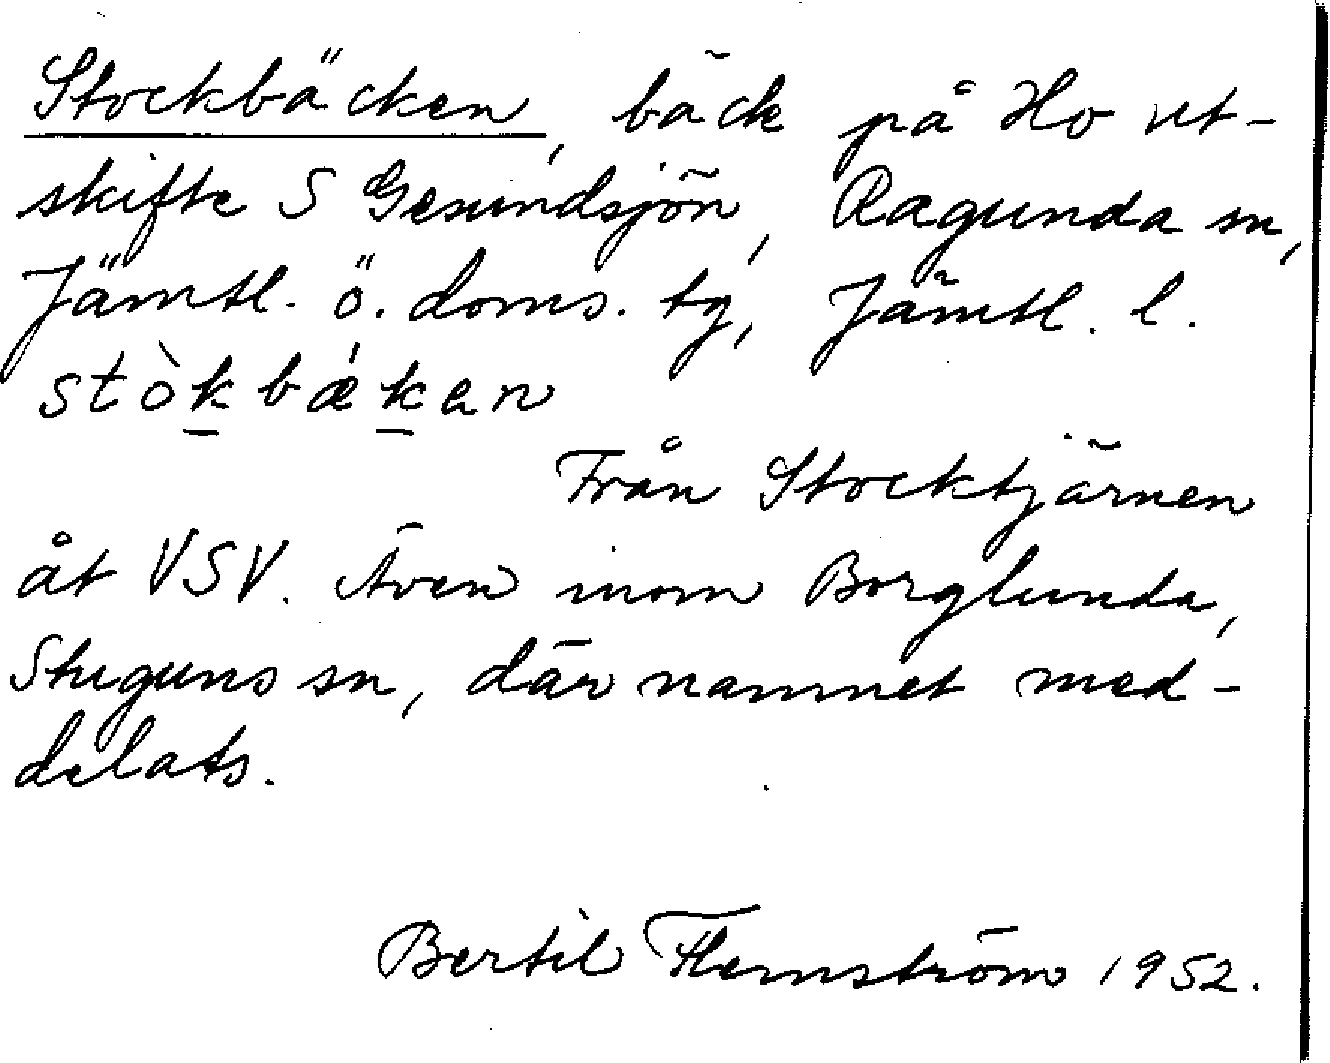 Stockbäcken, bäck på Ho ut-
skifte S Gesundsjön, Ragunda sn,
Jämtl. ö. doms. tg, Jämtl. l.
stòkbǽkan
Från Stocktjärnen
åt VSV. Även inom Borglunda,
Stuguns sn, där namnet med-
delats.
Bertil Flemström 1952.